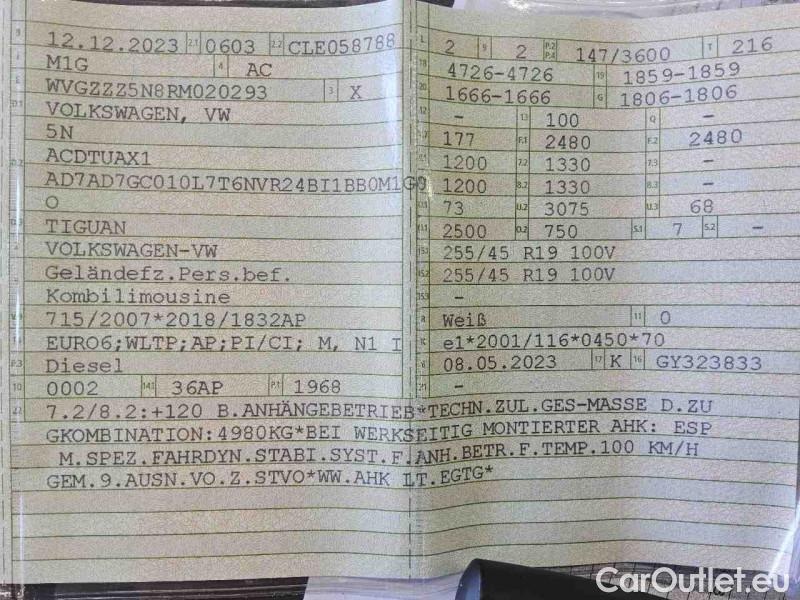 B 12.12.2023 2.1 0603 2.2 CLE058788
J M1G 4 AC
E WVGZZZ5N8RM020293 3 X
D.1 VOLKSWAGEN, VW
5N
D.2 ACDTUAX1
AD7AD7GC010L7T6NVR24BI1BB0M1G0
O
D.3 TIGUAN
VOLKSWAGEN-VW
Geländefz.Pers.bef.
Kombilimousine
V.9 715/2007*2018/1832AP
EURO6;WLTP;AP;PI/CI; M, N1 I
P.3 Diesel
10 0002 14.1 36AP P.1 1968
L 2 9 2 P.2 P.4 147/3600 T 216
18 4726-4726 19 1859-1859
20 1666-1666 G 1806-1806
12 - 13 100 Q -
177 F.1 2480 F.2 2480
7.1 1200 7.2 1330 7.3 -
8.1 1200 8.2 1330 8.3 -
U.1 73 U.2 3075 U.3 68
O.1 2500 O.2 750 S.1 7 S.2 -
15.1 255/45 R19 100V
15.2 255/45 R19 100V
15.3 -
R Weiß 11 0
K e1*2001/116*0450*70
6 08.05.2023 17 K 16 GY323833
21 -
22 7.2/8.2:+120 B.ANHÄNGEBETRIEB*TECHN.ZUL.GES-MASSE D.ZU
GKOMBINATION:4980KG*BEI WERKSEITIG MONTIERTER AHK: ESP
M.SPEZ.FAHRDYN.STABI.SYST.F.ANH.BETR.F.TEMP.100 KM/H
GEM.9.AUSN.VO.Z.STVO*WW.AHK LT.EGTG*
CarOutlet.eu